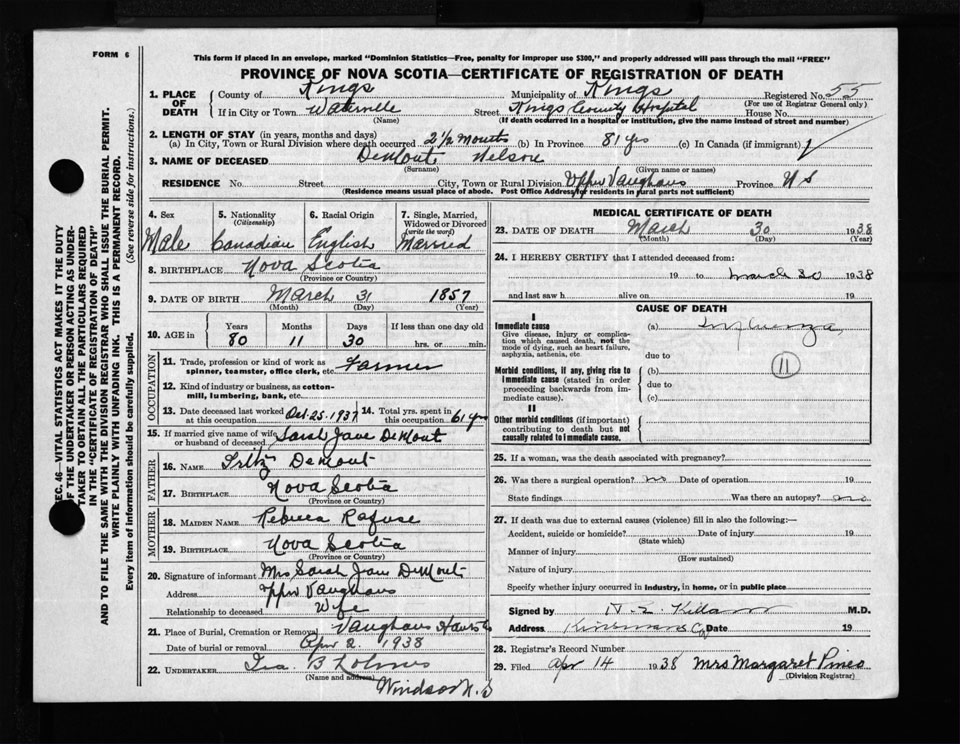 FORM 6
This form if placed in an envelope, marked "Dominion Statistics—Free, penalty for improper use $300," and properly addressed will pass through the mail "FREE"
PROVINCE OF NOVA SCOTIA—CERTIFICATE OF REGISTRATION OF DEATH
SEC. 46—VITAL STATISTICS ACT MAKES IT THE DUTY
OF THE UNDERTAKER OR PERSON ACTING AS UNDER-
TAKER TO OBTAIN ALL THE PARTICULARS REQUIRED
IN THE "CERTIFICATE OF REGISTRATION OF DEATH"
AND TO FILE THE SAME WITH THE DIVISION REGISTRAR WHO SHALL ISSUE THE BURIAL PERMIT.
WRITE PLAINLY WITH UNFADING INK. THIS IS A PERMANENT RECORD.
Every item of information should be carefully supplied. (See reverse side for instructions.)
1. PLACE OF DEATH County of Kings Municipality of Kings Registered No. 55
(For use of Registrar General only)
If in City or Town Waterville Street Kings County Hospital House No.
(Name) (If death occurred in a hospital or institution, give the name instead of street and number)
2. LENGTH OF STAY (in years, months and days)
(a) In City, Town or Rural Division where death occurred 2½ Months (b) In Province 81 yrs (c) In Canada (if immigrant)
3. NAME OF DECEASED DeMont Nelson
(Surname) (Given name or names)
RESIDENCE No. Street City, Town or Rural Division Upper Vaughans Province N S
(Residence means usual place of abode. Post Office Address for residents in rural parts not sufficient)
4. Sex 5. Nationality 6. Racial Origin 7. Single, Married,
(Citizenship) Widowed or Divorced
(write the word)
Male Canadian English Married
8. BIRTHPLACE Nova Scotia
(Province or Country)
9. DATE OF BIRTH March 31 1857
(Month) (Day) (Year)
10. AGE in Years Months Days If less than one day old
80 11 30 hrs. or min.
OCCUPATION
11. Trade, profession or kind of work as
spinner, teamster, office clerk, etc. Farmer
12. Kind of industry or business, as cotton-
mill, lumbering, bank, etc.
13. Date deceased last worked at this occupation Oct. 25. 1937 14. Total yrs. spent in this occupation 61 yrs
15. If married give name of wife or husband of deceased Sarah Jane DeMont
FATHER
16. Name DeMont
17. Birthplace Nova Scotia
(Province or Country)
MOTHER
18. Maiden Name Rebecca Rafuse
19. Birthplace Nova Scotia
(Province or Country)
20. Signature of informant Mrs Sarah Jane DeMont
Address Upper Vaughans
Relationship to deceased Wife
21. Place of Burial, Cremation or Removal Vaughans Hants Co
Date of burial or removal Apr 2. 1938
22. UNDERTAKER Ira B
(Name and address)
Windsor N.S
MEDICAL CERTIFICATE OF DEATH
23. DATE OF DEATH March 30 1938
(Month) (Day) (Year)
24. I HEREBY CERTIFY that I attended deceased from:
19 to March 30 1938
and last saw h alive on 19
CAUSE OF DEATH
I
Immediate cause (a) Influenza
Give disease, injury or complica-
tion which caused death, not the
mode of dying, such as heart failure,
asphyxia, asthenia, etc. due to
11
Morbid conditions, if any, giving rise to (b)
immediate cause (stated in order due to
proceeding backwards from im-
mediate cause). (c)
II
Other morbid conditions (if important)
contributing to death but not
causally related to immediate cause.
25. If a woman, was the death associated with pregnancy?
26. Was there a surgical operation? no Date of operation 19
State findings Was there an autopsy? no
27. If death was due to external causes (violence) fill in also the following:—
Accident, suicide or homicide? Date of injury 19
(State which)
Manner of injury
(How sustained)
Nature of injury
Specify whether injury occurred in industry, in home, or in public place
Signed by Killam M.D.
Address Kinsmans Cor Date 19
28. Registrar's Record Number
29. Filed Apr 14 1938 Mrs Margaret Pineo
(Division Registrar)